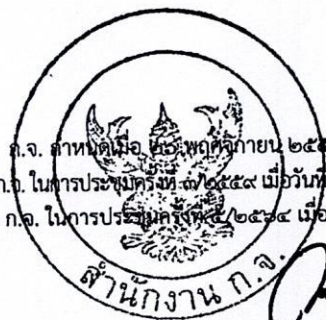 ก.จ. กำหนดเมื่อ พฤศจิกายน ๒๕๕
ก.จ. ในการประชุมครั้งที่ ๓/๒๕๕๙ เมื่อวันที่
ก.จ. ในการประชุมครั้งที่ ๕/๒๕๖๔ เมื่อ
สำนักงาน ก.จ.